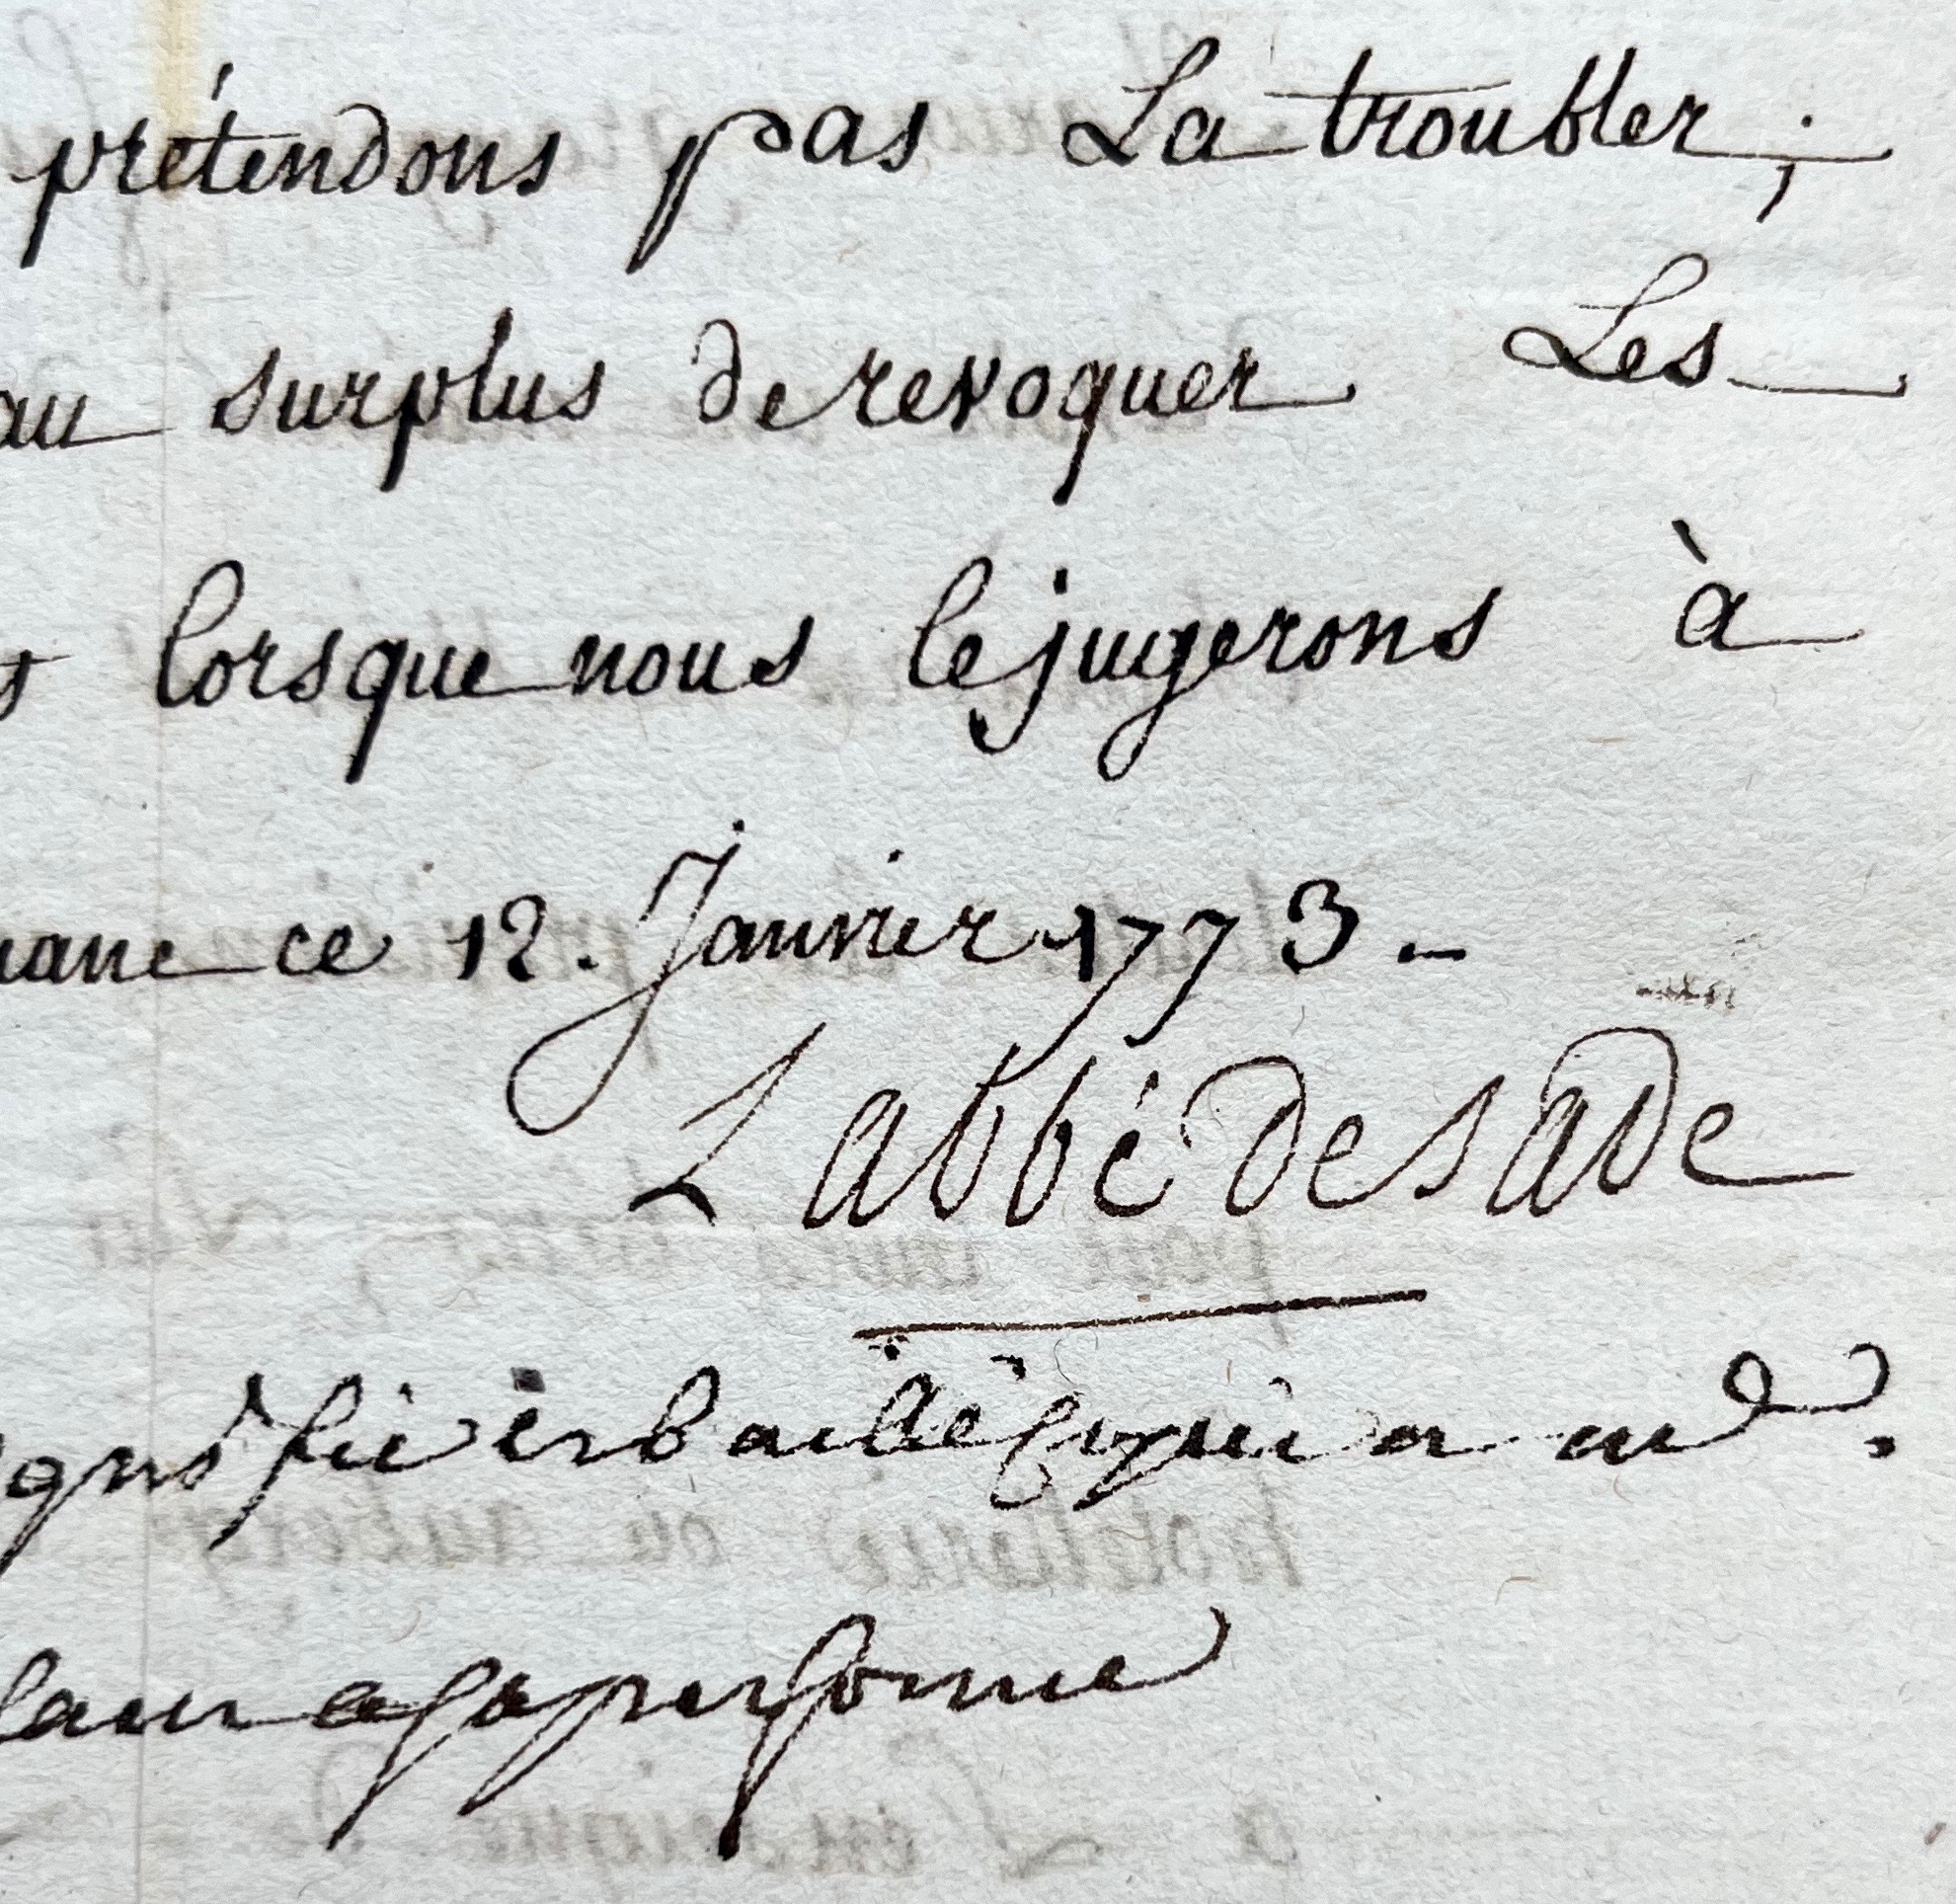 prétendons pas La troubler;
au surplus de revoquer Les
lorsque nous le jugerons à
ce 12. Janvier 1773.
L'abbé de sade
et baillé copie a
a sa personne